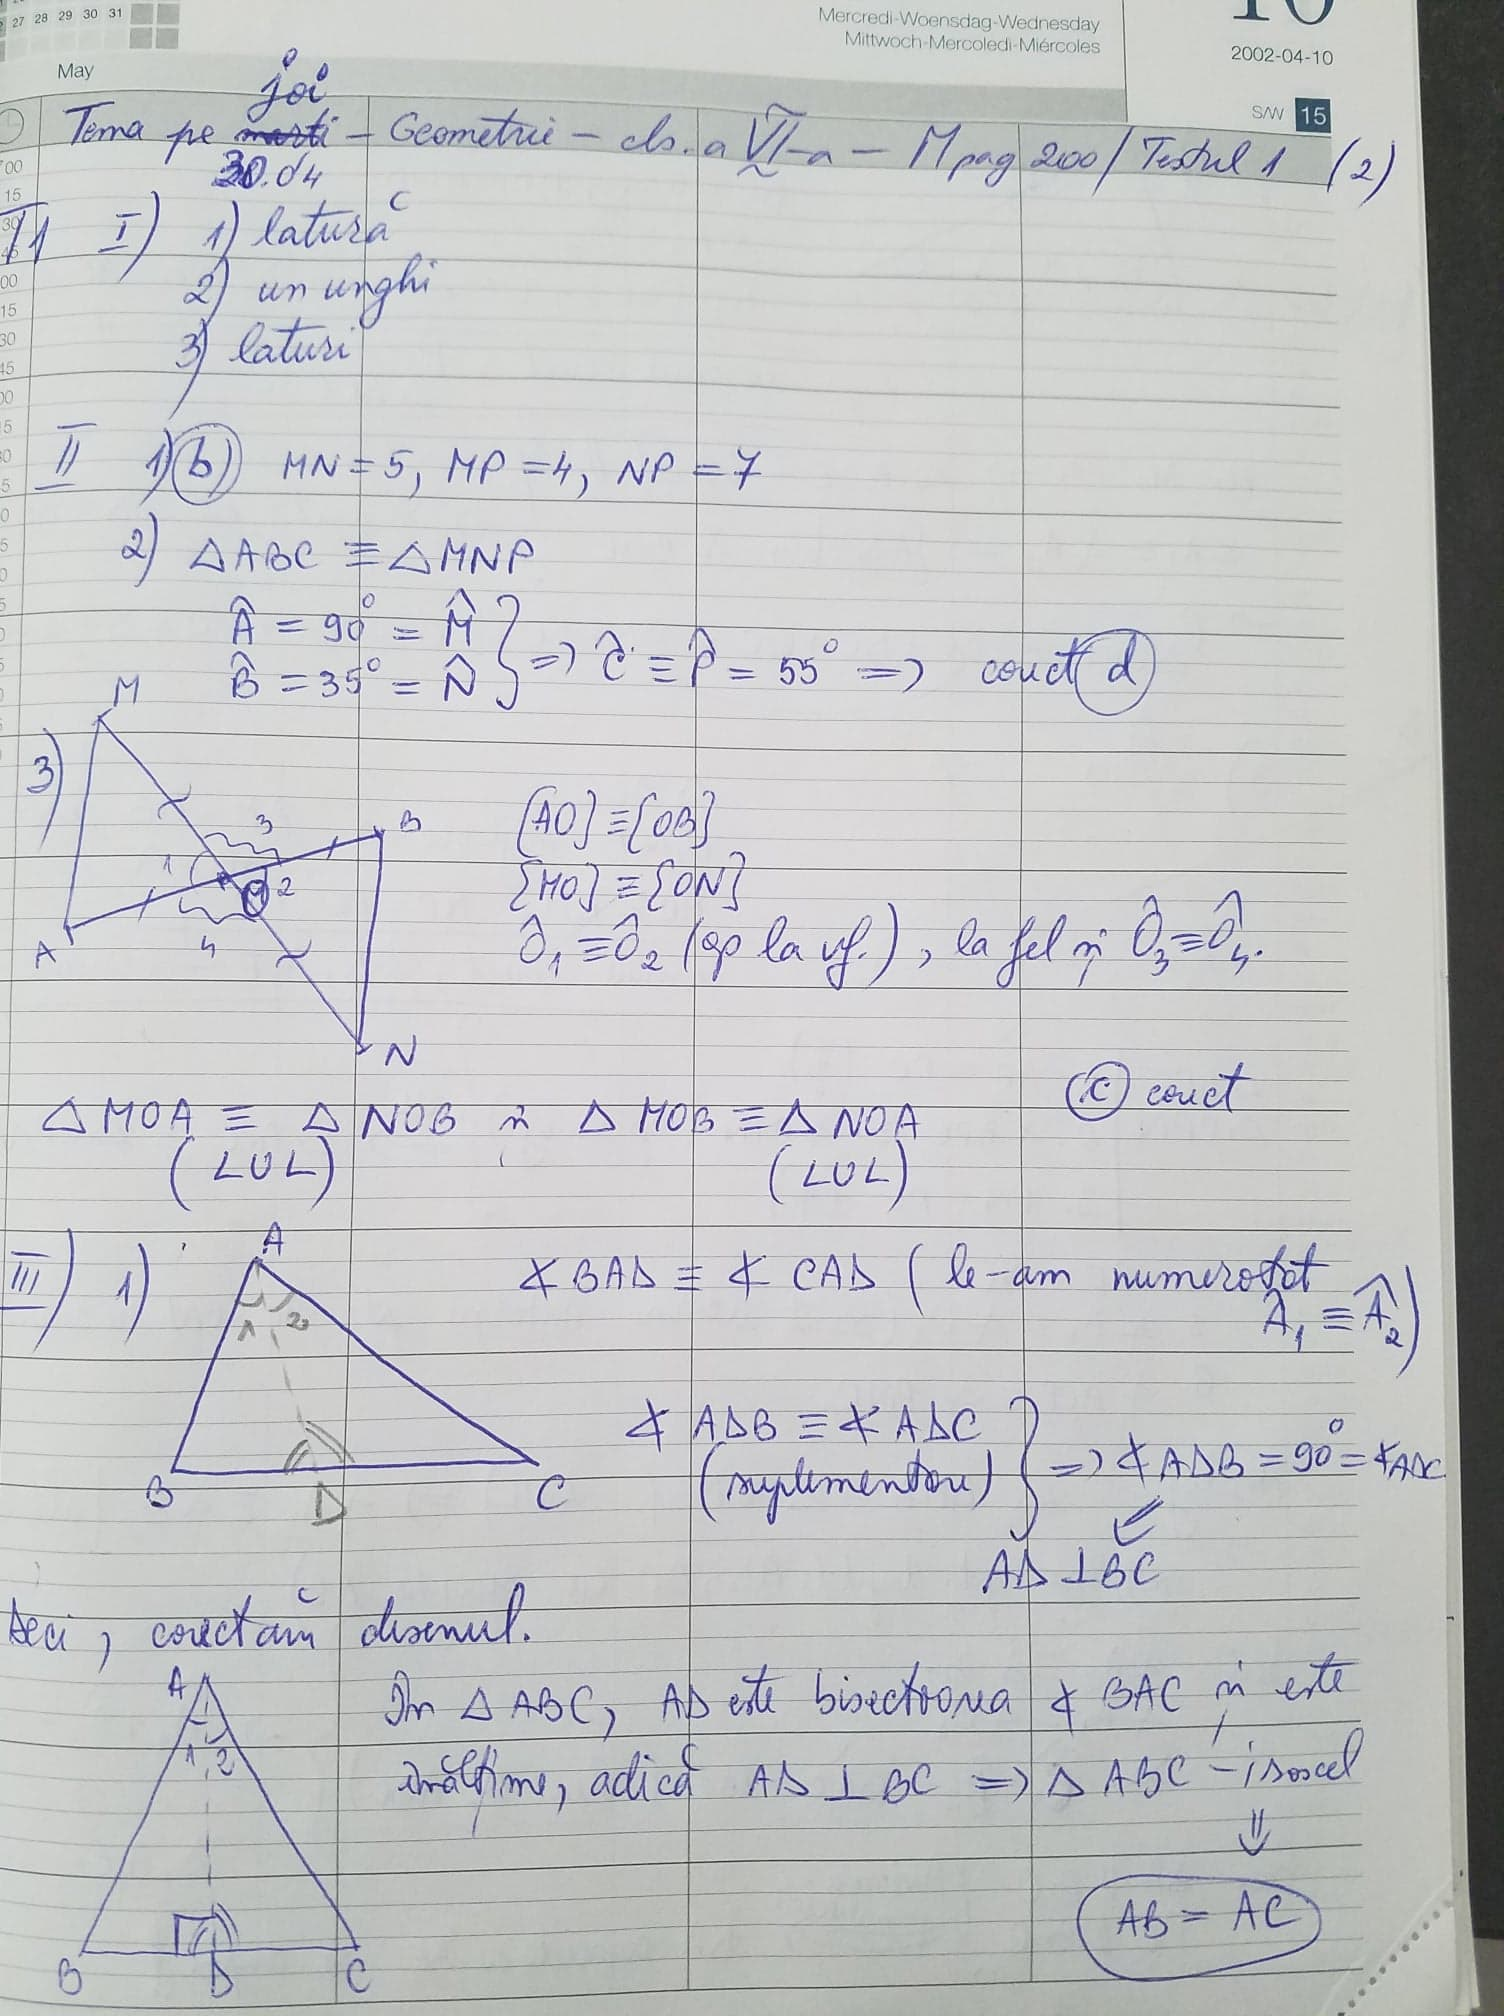 27 28 29 30 31
May
Mercredi-Woensdag-Wednesday
Mittwoch-Mercoledi-Miércoles
10
2002-04-10
S/W 15
joi
Tema pe marti - Geometrie - cls. a VI-a - M pag 200/ Testul 1 (2)
30.04
T1 I) 1) latură
2) un unghi
3) laturi
II 1) b) MN = 5, MP = 4, NP = 7
2) △ABC ≡ △MNP
Â = 90° = M̂
B̂ = 35° = N̂ } => Ĉ ≡ P̂ = 55° => corect d
3)
M
3 B
1 O 2
A 4
N
[AO] ≡ [OB]
[MO] ≡ [ON]
Ô1 ≡ Ô2 (op la vf.), la fel și Ô3 ≡ Ô4.
c) corect
△ MOA ≡ △ NOB și △ MOB ≡ △ NOA
(LUL) (LUL)
III) 1)
A
1 2
B D C
∢ BAD ≡ ∢ CAD (le-am numerotat
Â1 ≡ Â2)
∢ ADB ≡ ∢ ADC
(suplementare) } => ∢ ADB = 90° = ∢ADC
AD ⊥ BC
Deci, corectăm desenul.
A
1 2
B D C
În △ ABC, AD este bisectoarea ∢ BAC și este
înălțime, adică AD ⊥ BC => △ ABC - isoscel
⇓
AB = AC